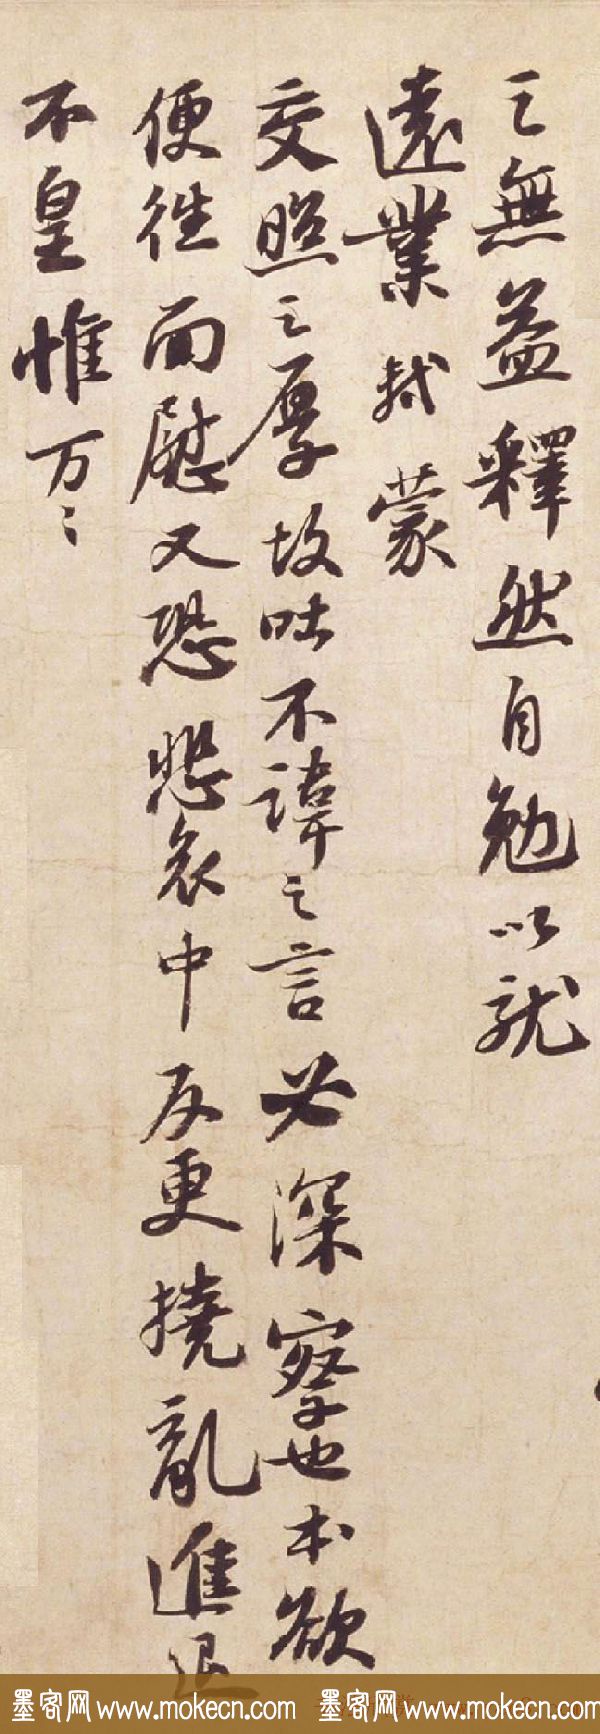 之無益釋然自勉以就
遠業軾蒙
交照之厚故吐不諱之言必深察也本欲
便往面慰又恐悲哀中反更撓亂進退
不皇惟万〻
墨客网 www.mokecn.com 墨客网 www.mokecn.com